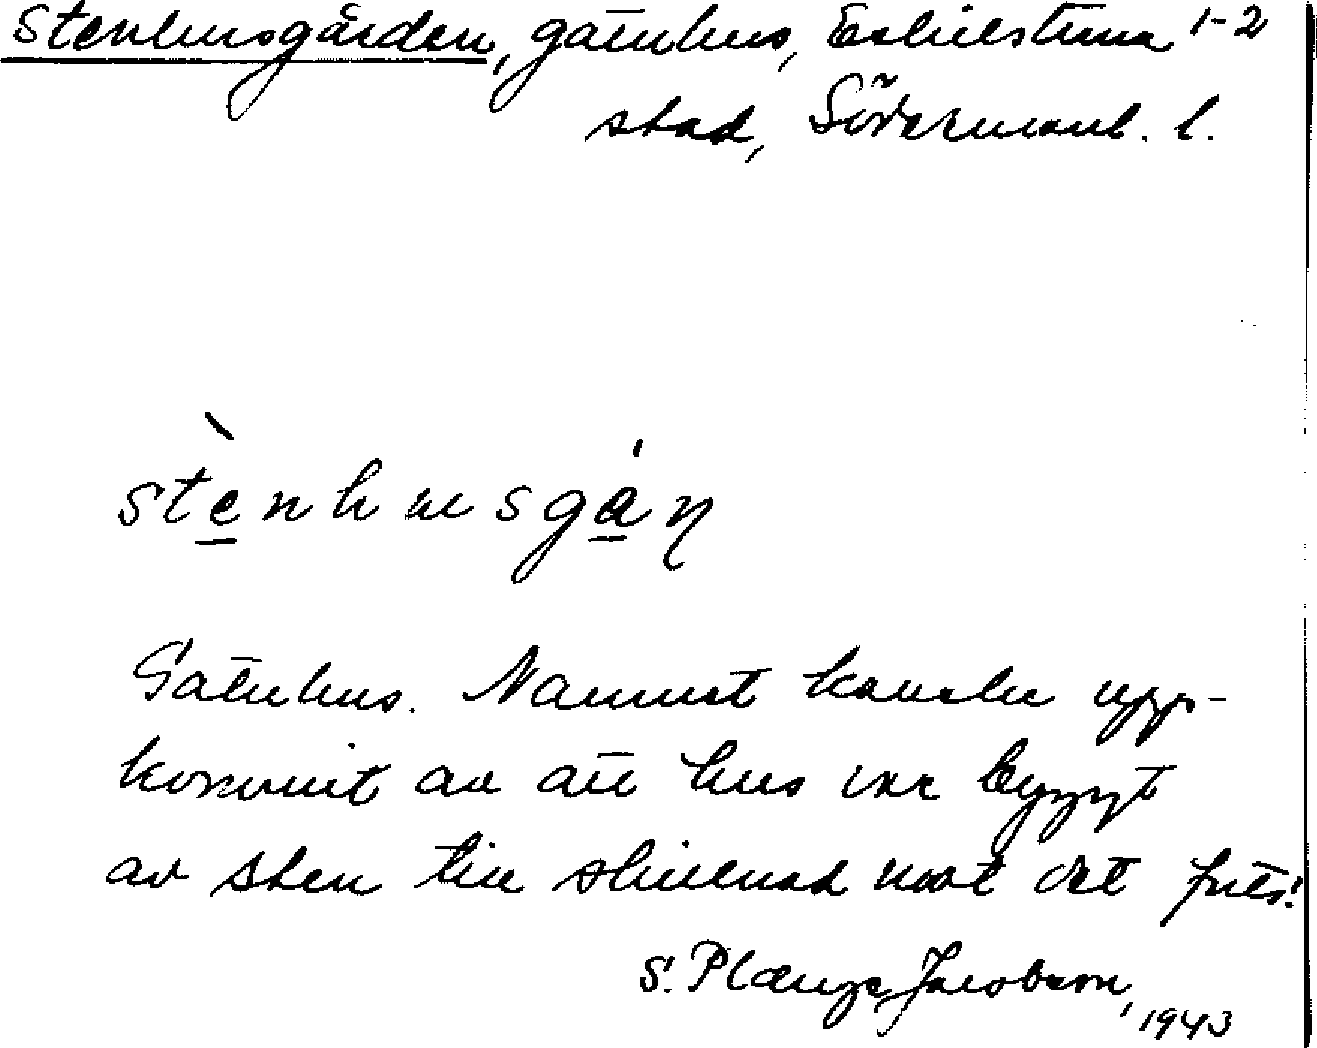 Stenhusgården, gatuhus, Eskilstuna 1-2
stad, Södermanl. l.
stènhusgá̱ṇ
Gatuhus. Namnet kanske upp-
kommit av att hus var byggt
av sten till skillnad mot det
S. Plænge Jacobson,
1943